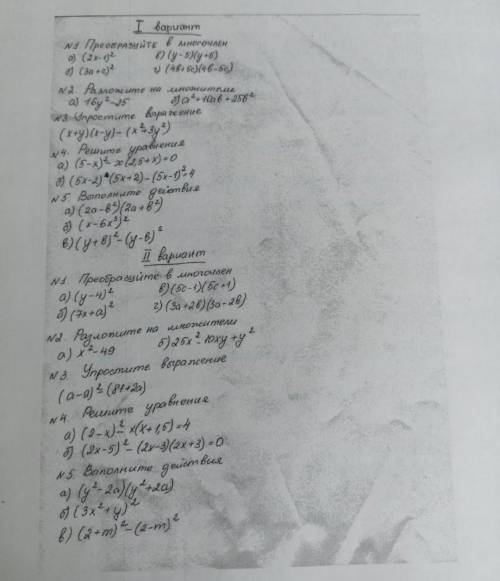 I вариант
№1. Преобразуйте в многочлен
а) (2х-1)² в) (у-5)(у+5)
б) (3а+с)² г) (4в+5с)(4в-5с)
№2. Разложите на множители
а) 16у²-25 б) а²+10ав+25в²
№3. Упростите выражение
(х+у)(х-у)-(х²+3у²)
№4. Решите уравнения
а) (5-х)²-х(2,5+х)=0
б) (5х-2)(5х+2)-(5х-1)²=4
№5. Выполните действия
а) (2а-в²)(2а+в²)
б) (х-6х³)²
в) (у+в)²-(у-в)²
II вариант
№1. Преобразуйте в многочлен
а) (у-4)² в) (5с-1)(5с+1)
б) (7х+а)² г) (3а+2в)(3а-2в)
№2. Разложите на множители
а) х²-49 б) 25х²-10ху+у²
№3. Упростите выражение
(а-9)²-(81+2а)
№4. Решите уравнения
а) (2-х)²-х(х+1,5)=4
б) (2х-5)²-(2х-3)(2х+3)=0
№5. Выполните действия
а) (у²-2а)(у²+2а)
б) (3х²+у)²
в) (2+m)²-(2-m)²